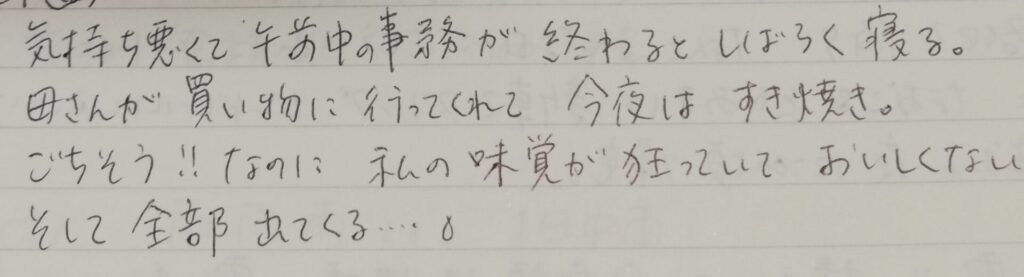 気持ち悪くて 午前中の事務が 終わるとしばらく寝る。
母さんが 買い物に行ってくれて 今夜は すき焼き。
ごちそう!! なのに 私の味覚が狂っていて おいしくない
そして 全部 出てくる…。